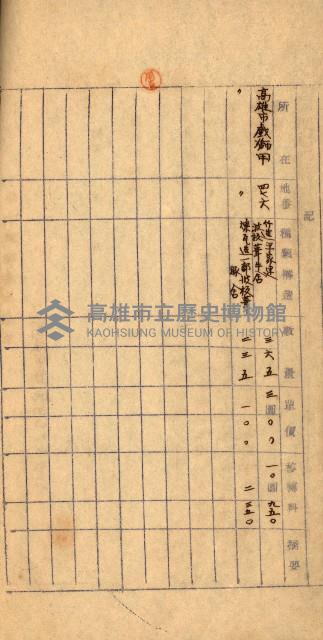 記
所在 地番 種類構造 數量 單價 移轉料 摘要
高雄市戲獅甲 四七六 竹造平家建 波板葺牛舍 三六五 三圓〇〇 一〇圓九五〇
〃 〃 煉瓦造一部波板葺 豚舍 二三五 一〇〇 二三五〇
高雄市立歷史博物館
KAOHSIUNG MUSEUM OF HISTORY